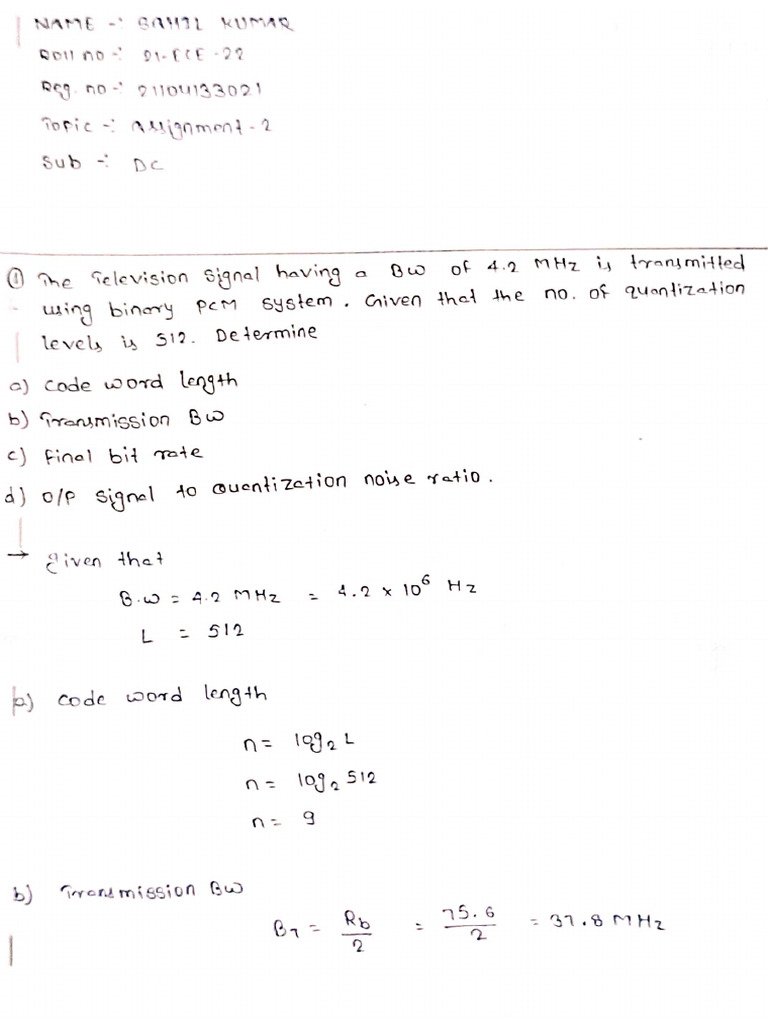 NAME -: SAHIL KUMAR
Roll no -: 21-ECE-22
Reg. no -: 21104133021
Topic -: Assignment-2
Sub -: DC
① The Television Signal having a BW of 4.2 MHz is transmitted
using binary PCM system. Given that the no. of quantization
levels is 512. Determine
a) Code word length
b) Transmission BW
c) final bit rate
d) O/P signal to Quantization noise ratio.
→ given that
B.W = 4.2 MHz = 4.2 × 10⁶ Hz
L = 512
a) Code word length
n = log₂ L
n = log₂ 512
n = 9
b) Transmission BW
B_T = R_b/2 = 75.6/2 = 37.8 MHz